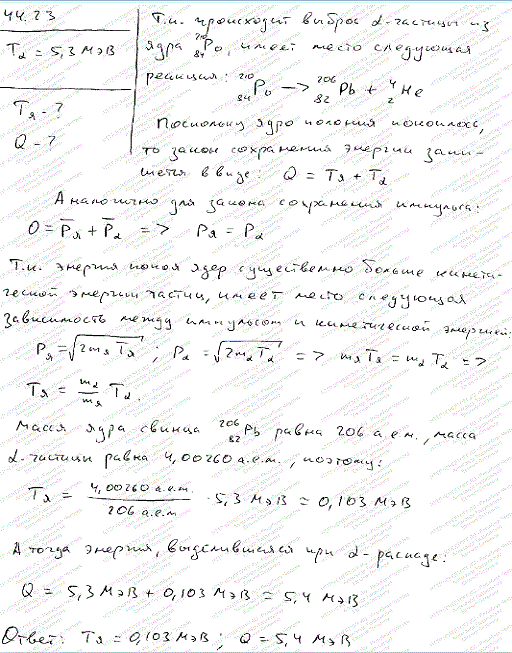 44.23
Tα = 5,3 МэВ
Tя - ?
Q - ?
Т.к. происходит выброс α-частицы из
ядра ²¹⁰₈₄Po, имеет место следующая
реакция: ²¹⁰₈₄Po –> ²⁰⁶₈₂Pb + ⁴₂He
Поскольку ядро полония покоилось,
то закон сохранения энергии запи-
шется в виде: Q = Tя + Tα
Аналогично для закона сохранения импульса:
0 = P̅я + P̅α => Pя = Pα
Т.к. энергия покоя ядер существенно больше кинети-
ческой энергии частиц, имеет место следующая
зависимость между импульсом и кинетической энергией:
Pя = √2mя Tя ; Pα = √2mα Tα => mя Tя = mα Tα =>
Tя = mα/mя Tα.
Масса ядра свинца ²⁰⁶₈₂Pb равна 206 а.е.м., масса
α-частицы равна 4,00260 а.е.м., поэтому:
Tя = 4,00260 а.е.м. / 206 а.е.м · 5,3 МэВ = 0,103 МэВ
А тогда энергия, выделившаяся при α-распаде:
Q = 5,3 МэВ + 0,103 МэВ = 5,4 МэВ
Ответ: Tя = 0,103 МэВ ; Q = 5,4 МэВ